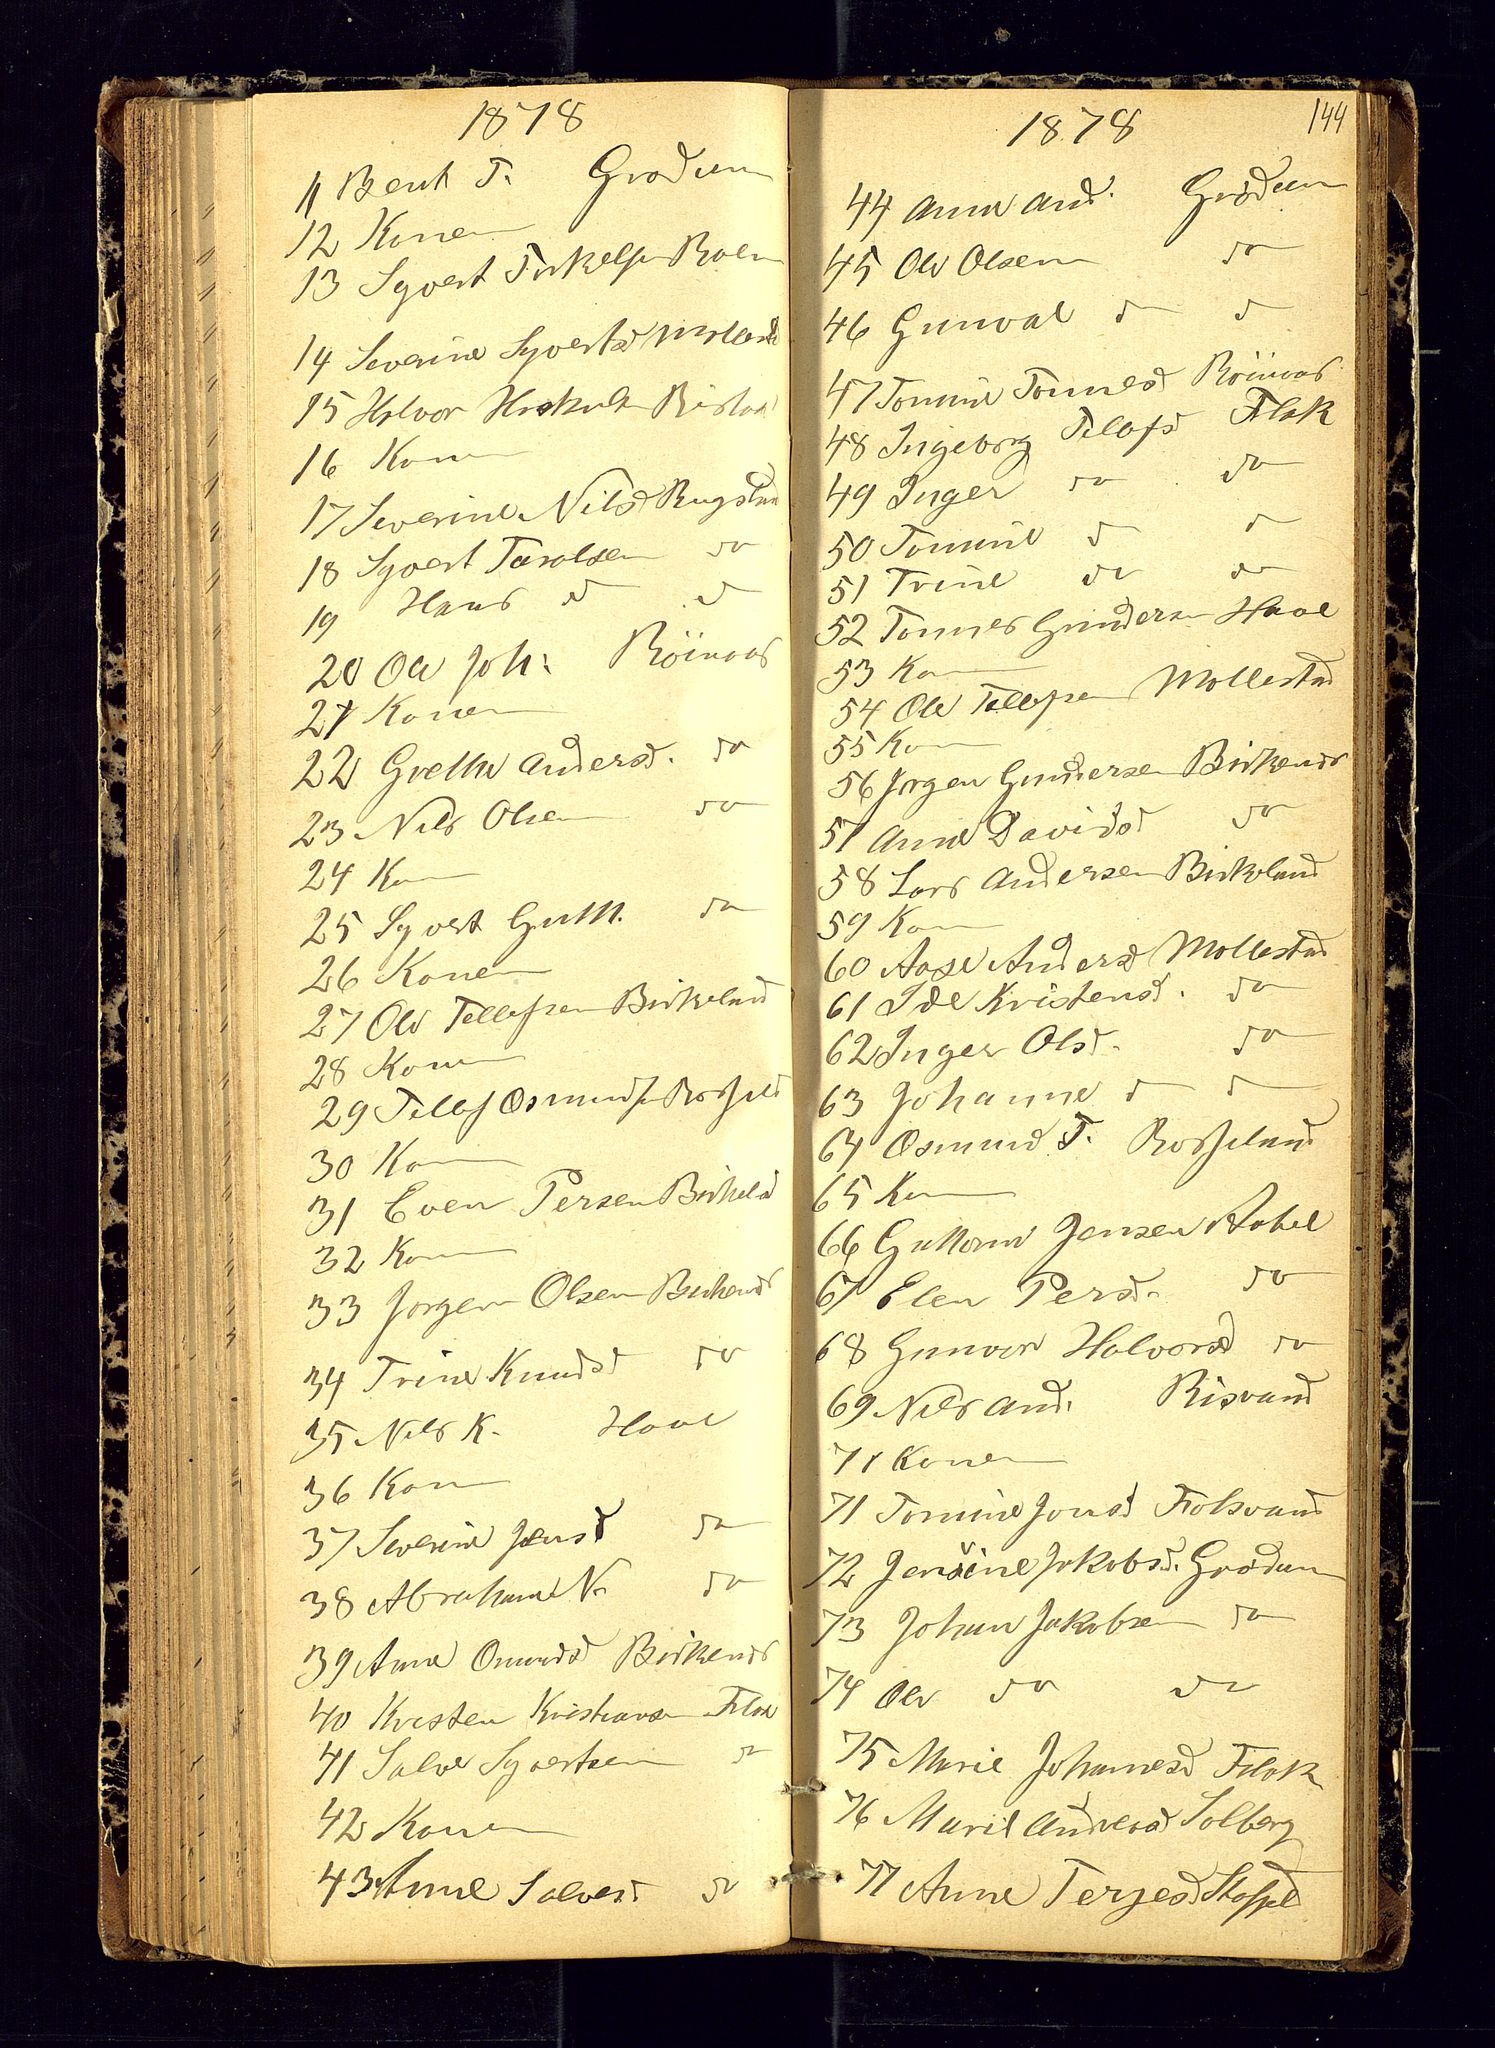 1878
11 Bent T. Grødum
12 Konen
13 Syvert Torkelsen Roen
14 Severine Syvertsd Molland
15 Halvor
16 Konen
17 Severine Nilsd
18 Syvert Tarolsen do
19 Hans d d
20 Ole Joh: Röinaas
21 Konen
22 Grethe Andersd. do
23 Nils Olsen do
24 Kon
25 Syvert Gutt. do
26 Konen
27 Ole Tellefsen Birkeland
28 Konen
29 Tellef Osmundsen Rosseland
30 Kon
31 Even Persen Birkeld
32 Kon
33 Jørgen Olsen Birkenes
34 Trine Knudsd do
35 Nils K. Haae
36 Kon
37 Severine Jensd do
38 Abraham N. do
39 Anne Omundsd Birkenes
40 Kristen Kristiansen Flak
41 Salve Syvertsen do
42 Konen
43 Anne Salvesd do
144
1878
44 Anne And. Grødum
45 Ole Olsen do
46 Gunval d d
47 Tomine Tønnesd Röinaas
48 Ingeborg Tellefsd Flak
49 Inger do do
50 Tomine d d
51 Trine do do
52 Tønnes Gundersen Haae
53 Kon
54 Ole Tellefsen Mollestad
55 Kon
56 Jørgen Gundersen Birkenes
57 Anne Davidsd do
58 Lars Andersen Birkeland
59 Kon
60 Aase Andersd Mollestad
61 Ide Kristensd. do
62 Inger Olsd. do
63 Johanne d d
64 Osmund T. Rosseland
65 Kon
66 Guttorm Jensen Aabel
67 Elen Persd. do
68 Gunvor Halvorsd do
69 Nils And. Risvand
71 Konen
71 Tomine Jonsd Fiolsvand
72 Jensine Jakobsd. Grødum
73 Johan Jakobsen do
74 Ole do do
75 Marie Johannesd Flak
76 Marie Andreasd Solberg
77 Anne Terjesd Stoppel